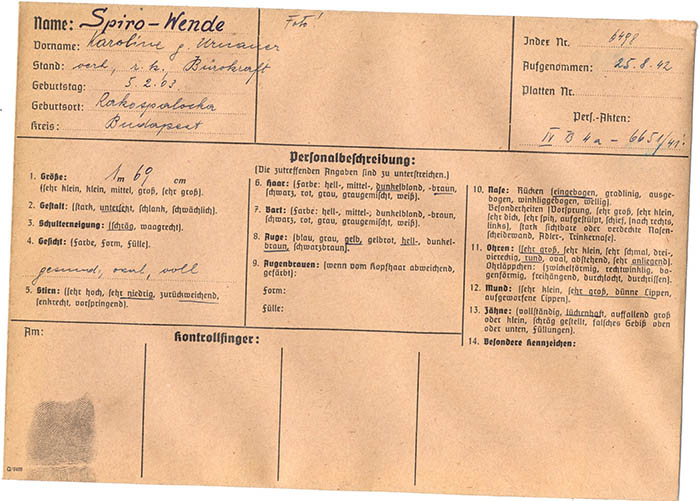 Name: Spiro-Wende
Foto!
Vorname: Karoline g.
Stand: verh., r. k. Bürokraft
Geburtstag: 5.2.03
Geburtsort: Rakospalocka
Kreis: Budapest
Index Nr. 6498
Aufgenommen: 25.8.42
Platten Nr.
Pers.-Akten:
IV B 4a - 6651/41.
Personalbeschreibung:
(Die zutreffenden Angaben sind zu unterstreichen.)
1. Größe: 1m 69 cm
(sehr klein, klein, mittel, groß, sehr groß).
2. Gestalt: (stark, untersetzt, schlank, schwächlich).
3. Schulterneigung: (schräg, waagrecht).
4. Gesicht: (Farbe, Form, Fülle).
gesund, oval, voll
5. Stirn: (sehr hoch, sehr niedrig, zurückweichend,
senkrecht, vorspringend).
6. Haar: (Farbe: hell-, mittel-, dunkelblond, -braun,
schwarz, rot, grau, graugemischt, weiß).
7. Bart: (Farbe: hell-, mittel-, dunkelblond, -braun,
schwarz, rot, grau, graugemischt, weiß).
8. Auge: (blau, grau, gelb, gelbrot, hell-, dunkel-
braun, schwarzbraun).
9. Augenbrauen: (wenn vom Kopfhaar abweichend,
gefärbt):
Form:
Fülle:
10. Nase: Rücken (eingebogen, gradlinig, ausge-
bogen, winkliggebogen, wellig).
Besonderheiten (Vorsprung, sehr groß, sehr klein,
sehr dick, sehr spitz, aufgestülpt, schief, [nach rechts,
links], stark sichtbare oder verdeckte Nasen-
scheidewand, Adler-, Trinkernase).
11. Ohren: (sehr groß, sehr klein, sehr schmal, drei-
viereckig, rund, oval, abstehend, sehr anliegend).
Ohrläppchen: (zwickelförmig, rechtwinklig, bo-
genförmig, freihängend, durchlocht, durchrissen).
12. Mund: (sehr klein, sehr groß, dünne Lippen,
aufgeworfene Lippen).
13. Zähne: (vollständig, lückenhaft, auffallend groß
oder klein, schräg gestellt, falsches Gebiß oben
oder unten, Füllungen).
14. Besondere Kennzeichen:
Am:
Kontrollfinger: